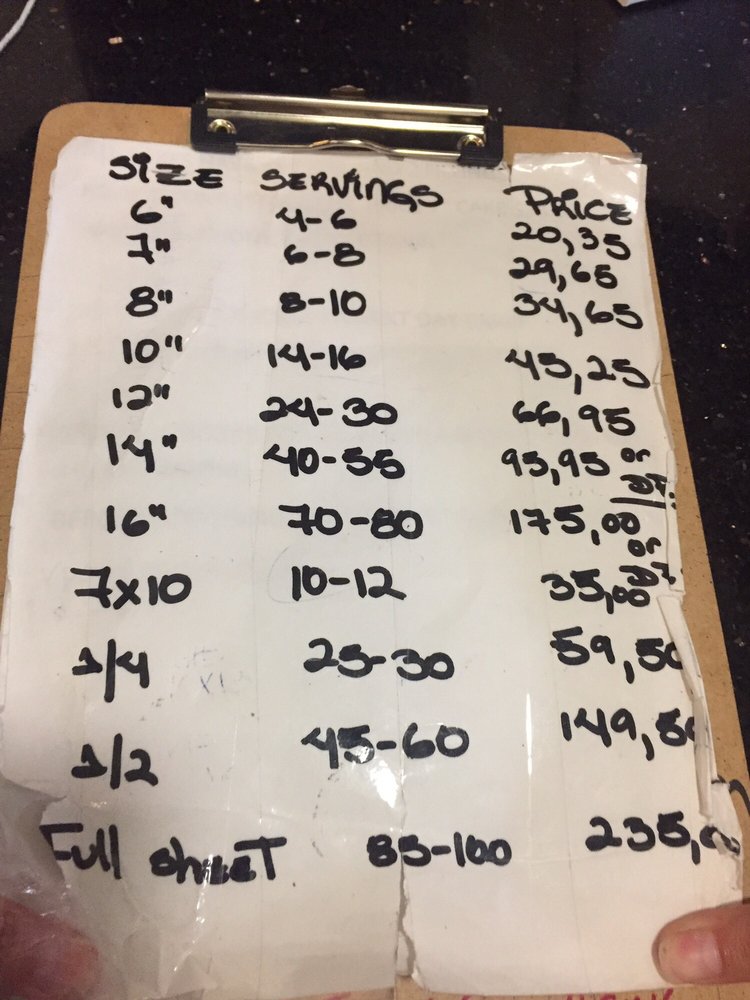 SIZE SERVINGS PRICE
6" 4-6 20,35
7" 6-8 29,65
8" 8-10 34,65
10" 14-16 45,25
12" 24-30 66,95
14" 40-55 95,95 or
16" 70-80 175,00 or
7x10 10-12 35,00
1/4 25-30 59,50
1/2 45-60 149,50
Full sheet 85-100 235,00